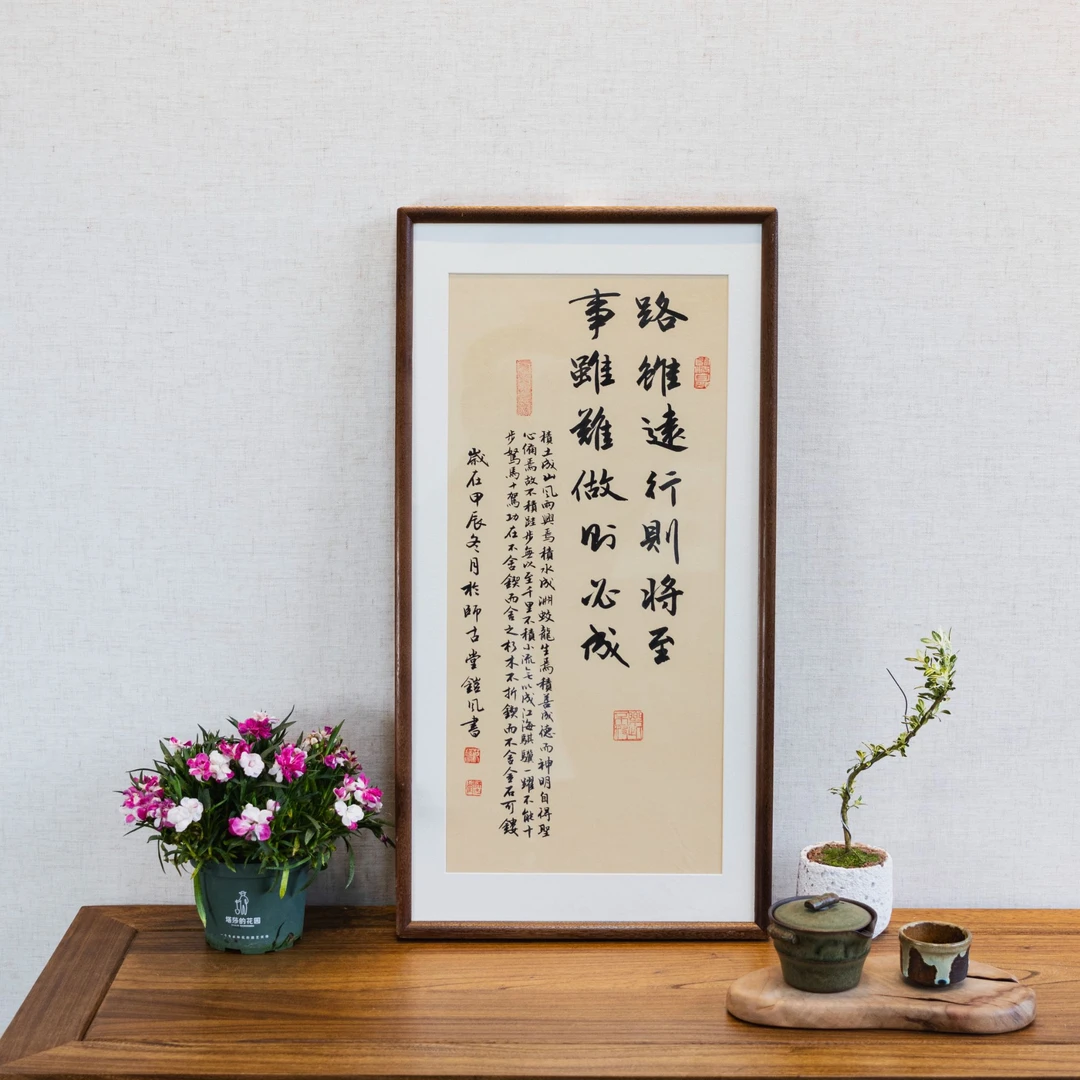 路雖遠行則將至
事雖難做則必成
積土成山風雨興焉積水成淵蛟龍生焉積善成德而神明自得聖
心備焉故不積跬步無以至千里不積小流無以成江海騏驥一躍不能十
步駑馬十駕功在不舍鍥而舍之朽木不折鍥而不舍金石可鏤
歲在甲辰冬月於師古堂鎧風書
塔莎的花园